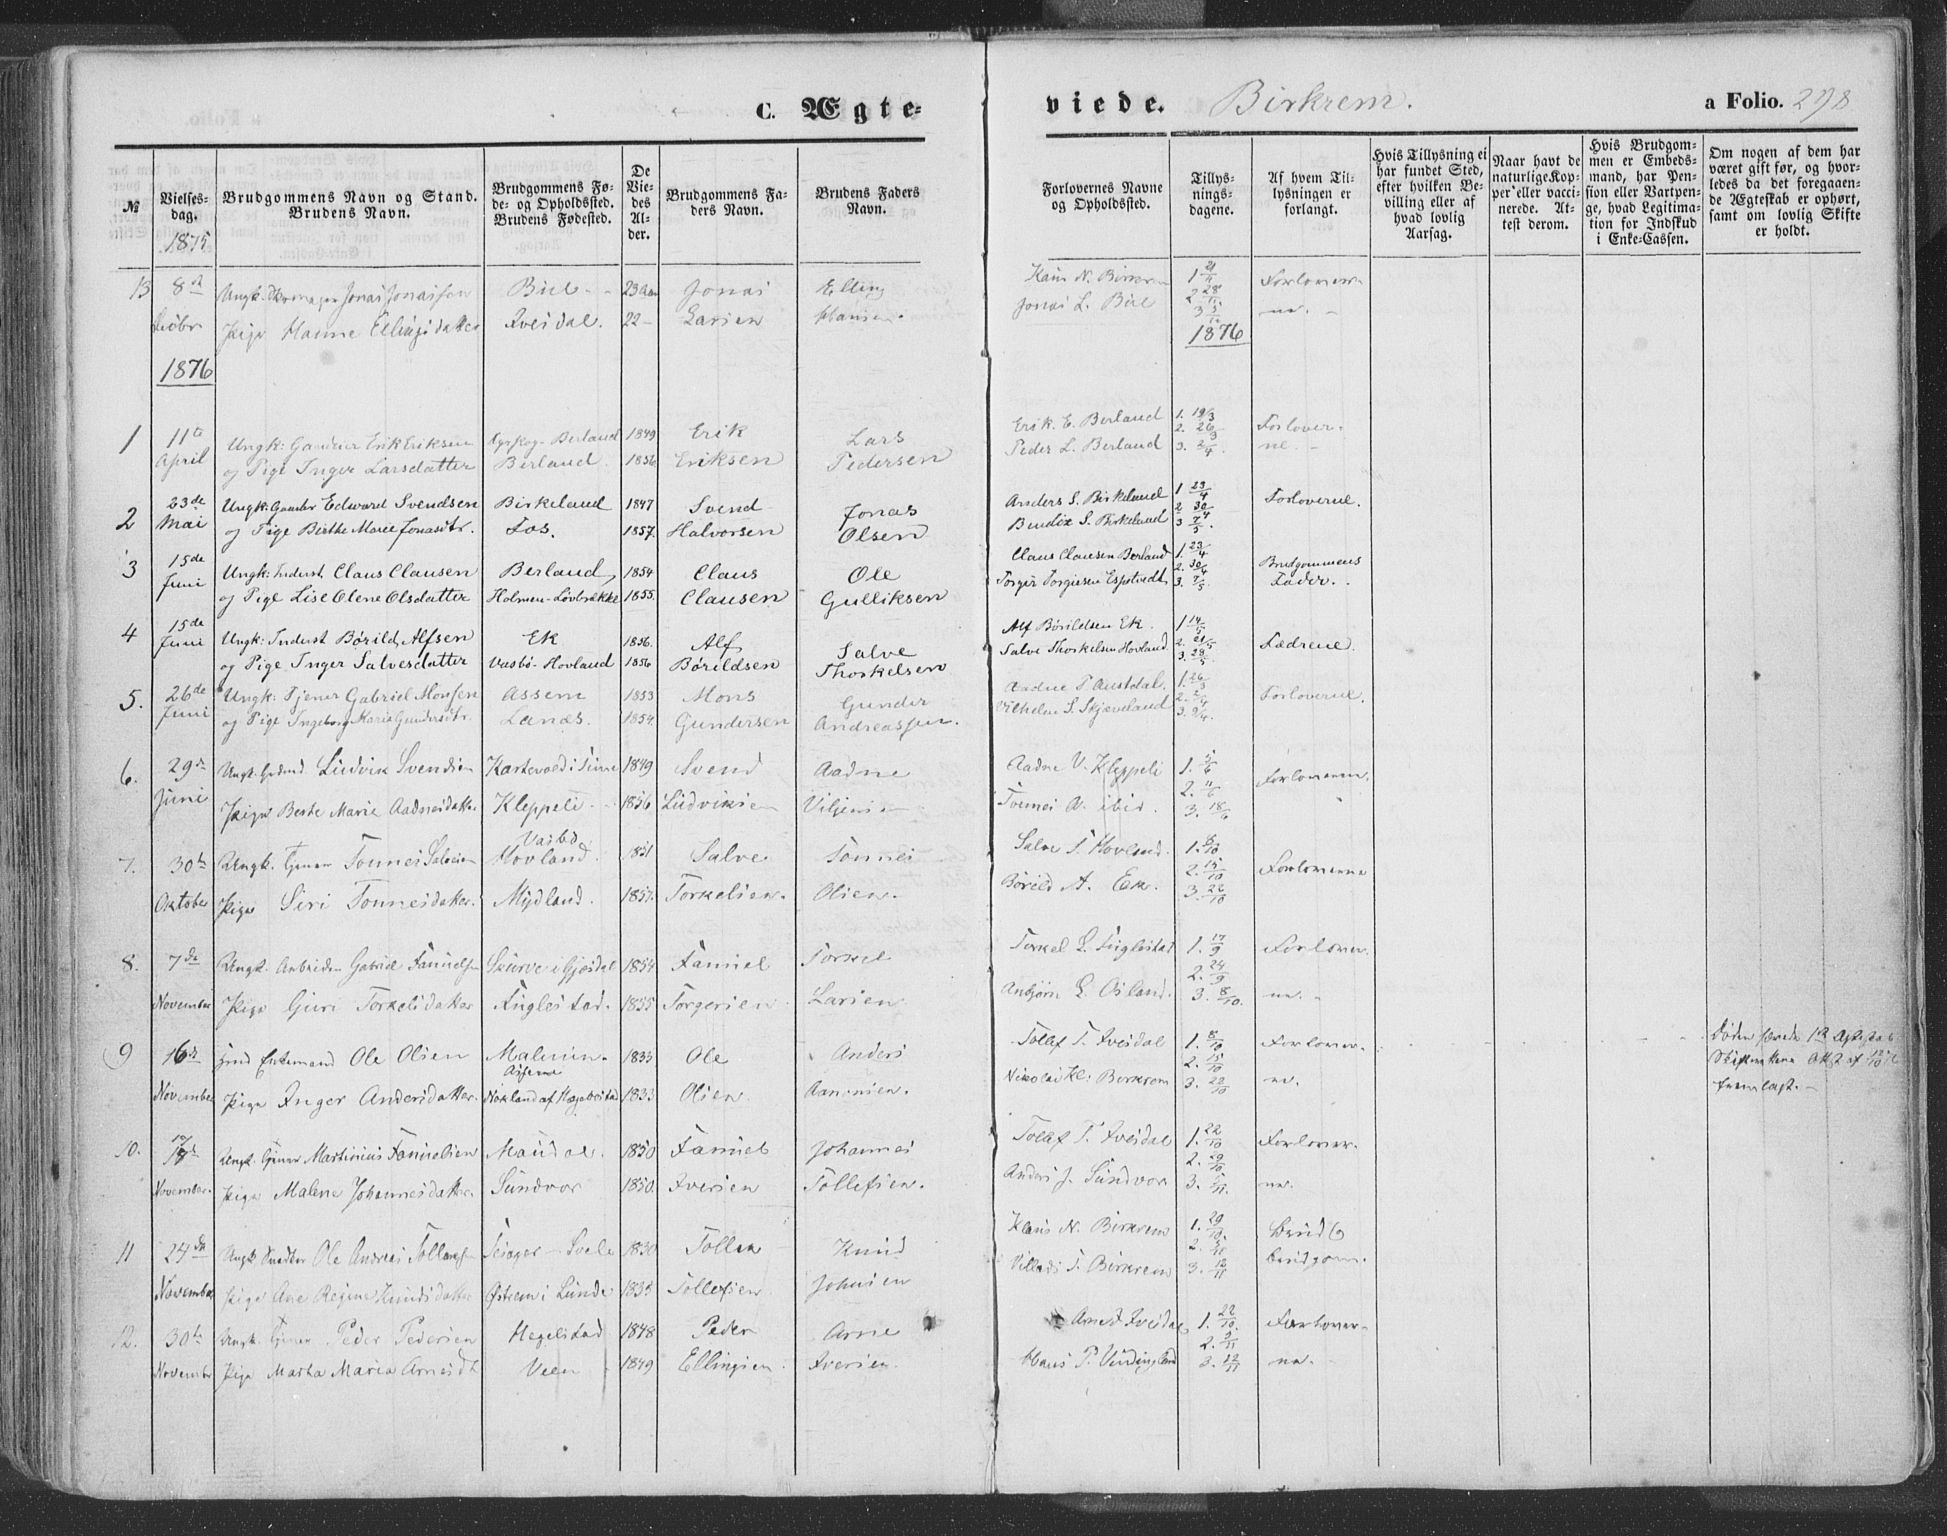 C. Ægte-
viede. Birkrem. a Folio. 298
№
Vielses-
dag.
1875
Brudgommens Navn og Stand.
Brudens Navn.
Brudgommens Fø-
de- og Opholdssted.
Brudens Fødested.
De
Vie-
des
Al-
der.
Brudgommens Fa-
ders Navn.
Brudens Faders
Navn.
Forlovernes Navne
og Opholdssted.
Tillys-
nings-
dagene.
Af hvem Til-
lysningen er
forlangt.
Hvis Tillysning ei
har fundet Sted,
efter hvilken Be-
villing eller af
hvad lovlig
Aarsag.
Naar havt de
naturlige Kop-
per eller vacci-
nerede. At-
test derom.
Hvis Brudgom-
men er Embeds-
mand, har Pen-
sion eller Vartpen-
ge, hvad Legitima-
tion for Indskud
i Enke-Cassen.
Om nogen af dem har
været gift før, og hvor-
ledes da det foregaaen-
de Ægteskab er ophørt,
samt om lovlig Skifte
er holdt.
13 8d Ungk. Jonas Jonassen Bue 23 Jonas Elling Klaus N. Birkrem 1 21/11 Forlover-
Pige Hanne Ellingsdatter Ivesdal. 22 Larsen Hansen. Jonas L. Bue 2 28/11 3 5/12 ne.
1876 1876
1 11te Ungk: Erik Eriksen Berland 1849 Erik Lars Erik E. Berland 1. 19/3 2. 26/3 Forlover-
April og Pige Inger Larsdatter Berland. 1856 Eriksen Pedersen Peder L. Berland 3. 2/4 ne.
2 23de Ungk: Edward Svendsen Birkeland 1847 Svend Jonas Anders S. Birkeland 1 23/4 Forloverne.
Mai og Pige Birthe Marie Jonasdtr. Fos. 1857. Halvorsen Olsen Bendix S. Birkeland 2 30/4 3 7/5.
3 15de Ungk: Inderst. Claus Clausen Berland, 1854 Claus Ole Claus Clausen Berland 1. 23/4 Brudgommens
Juni og Pige Lise Olene Olsdatter Holmen-Løvbrække 1855. Clausen Gulliksen Torger Torgersen Espetvedt 2. 30/4 3. 7/5 Fader.
4 15de Ungk: Inderst Børild Alfsen Ek 1856. Alf Salve Alf Børildsen Ek. 1 14/5 Fædrene.
Juni og Pige Inger Salvesdatter Vasbø-Hovland 1856 Børildsen Thorkelsen Salve Thorkelsen Hovland. 2. 21/5 3. 28/5
5. 26de Ungk: Tjener Gabriel Monsen Assem 1853 Mons Gunder Aadne T Austdal. 1. 26/3 Forloverne.
Juni og Pige Ingeborg Marie Gundersdtr. Lanæs. 1854. Gundersen Andreassen. Vilhelm S. Skjæveland 2. 2/4 3. 9/4.
6. 29de Ungk. Ludvik Svendsen 1849 Svend Aadne Aadne V. Kleppeli 1. 5/6 Forloverne.
Juni Pige Berte Marie Aadnesdatter. Kleppeli 1856 Ludviksen Tønnes A. ibid. 2. 11/6 3. 18/6
7. 30te Ungk. Tjener Tønnes Salvesen Vasbø Hovland. 1851 Salve Tønnes Salve T. Hovland. 1. 8/10 Forloverne
Oktober Pige Siri Tønnesdatter. Mydland. 1857. Torkelsen. Olsen. Børild A. Ek. 2. 15/10 3. 22/10
8. 7de Ungk. Arbeider Gabriel Samuelsen Skurve i Gjesdal 1854 Samuel Torkel Torkel L. Fuglestad 1. 17/9 Forlover-
November Pige Guri Torkelsdatter Fuglestad. 1855 Torgersen Larsen Asbjørn L. Osland. 2. 24/9 3. 8/10. ne.
9 16de Enkemand Ole Olsen Malmin. 1833 Ole Anders Tollef T. Ivesdal 1. 8/10 Forlover-
November Pige Inger Andersdatter. 1833 Olsen Nikolai Kl: Birkrem 2. 15/10 3. 22/10 ne. fremlagt.
10. 17de Ungk. Tjener Martinius Samuelsen Maudal. 1850 Samuel Johannes Tollef T. Ivesdal 1. 22/10 Forlover-
November. Pige Malene Johannesdatter. Sundvor 1850. Iversen Tollefsen. Anders J. Sundvor 2. 29/10 3. 5/11. ne.
11 24de Ungk. Ole Andreas Tollefsen 1830 Knud Klaus N. Birkrem 1. 29/10. Brud &
November Pige Ane Regine Knudsdatter Østrem i Lunde 1835 Tollefsen. Johnsen Villads T. Birkrem 2. 5/11 3. 12/11 brudgom.
12. 30te Ungk. Tjener Peder Pedersen Hegelstad 1848 Peder Arne Arnest Ivesdal 1. 22/10. Forlover-
November Pige Marta Maria Arnesdt Veen 1849 Ellingsen. Iversen Hans P. Vinningland 2. 5/11 3. 22/11 ne.